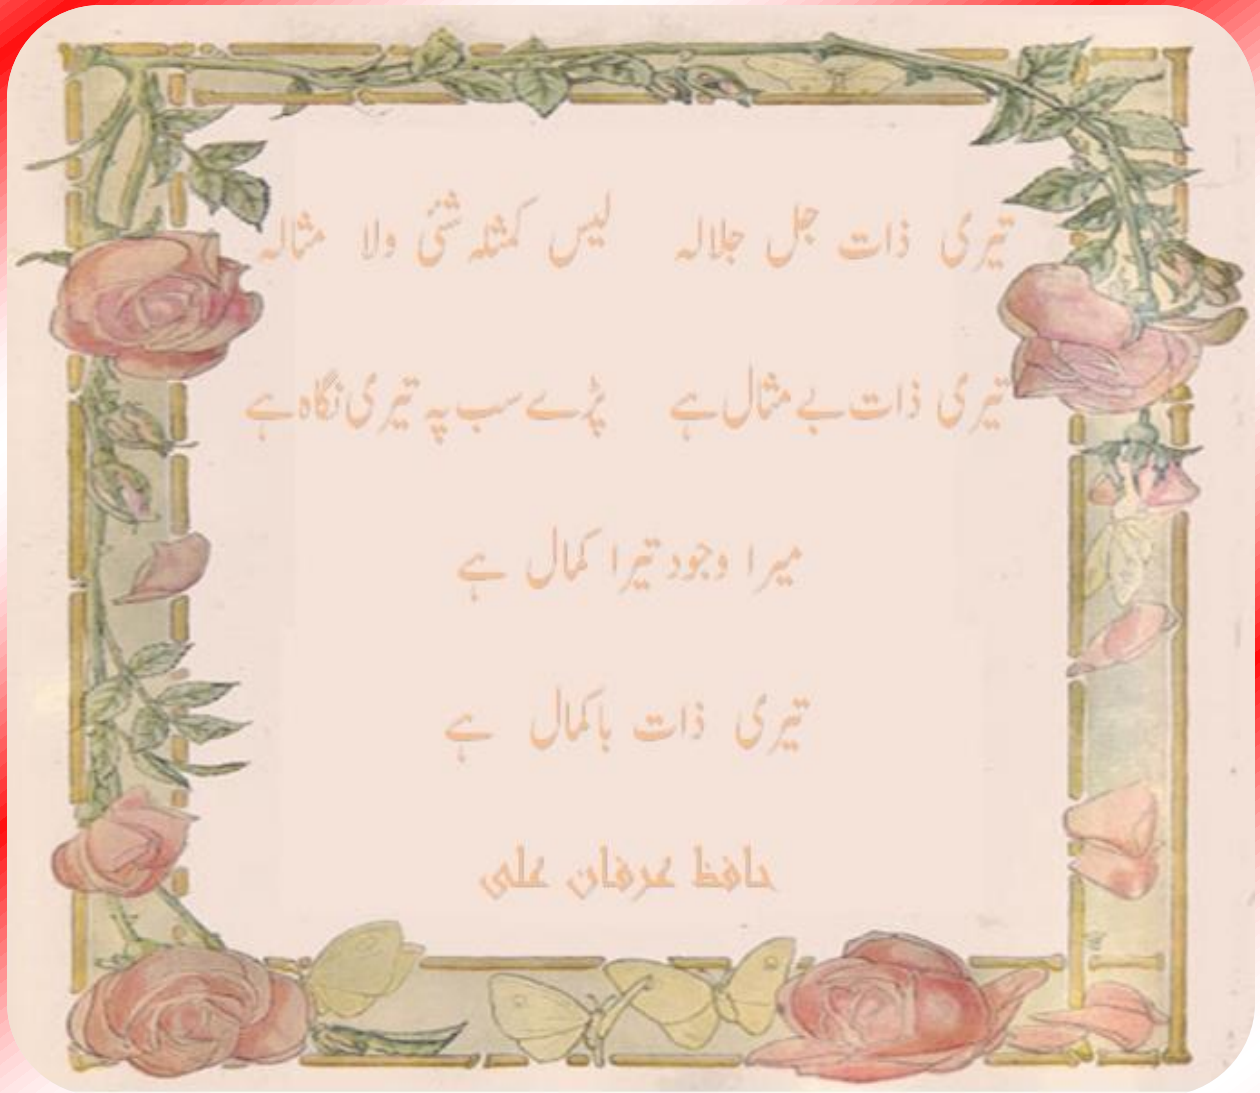 تیری ذات جل جلالہ لیس کمثلہ شئی ولا مثالہ
تیری ذات بے مثال ہے پڑے سب پہ تیری نگاہ ہے
میرا وجود تیرا کمال ہے
تیری ذات باکمال ہے
حافظ عرفان علی